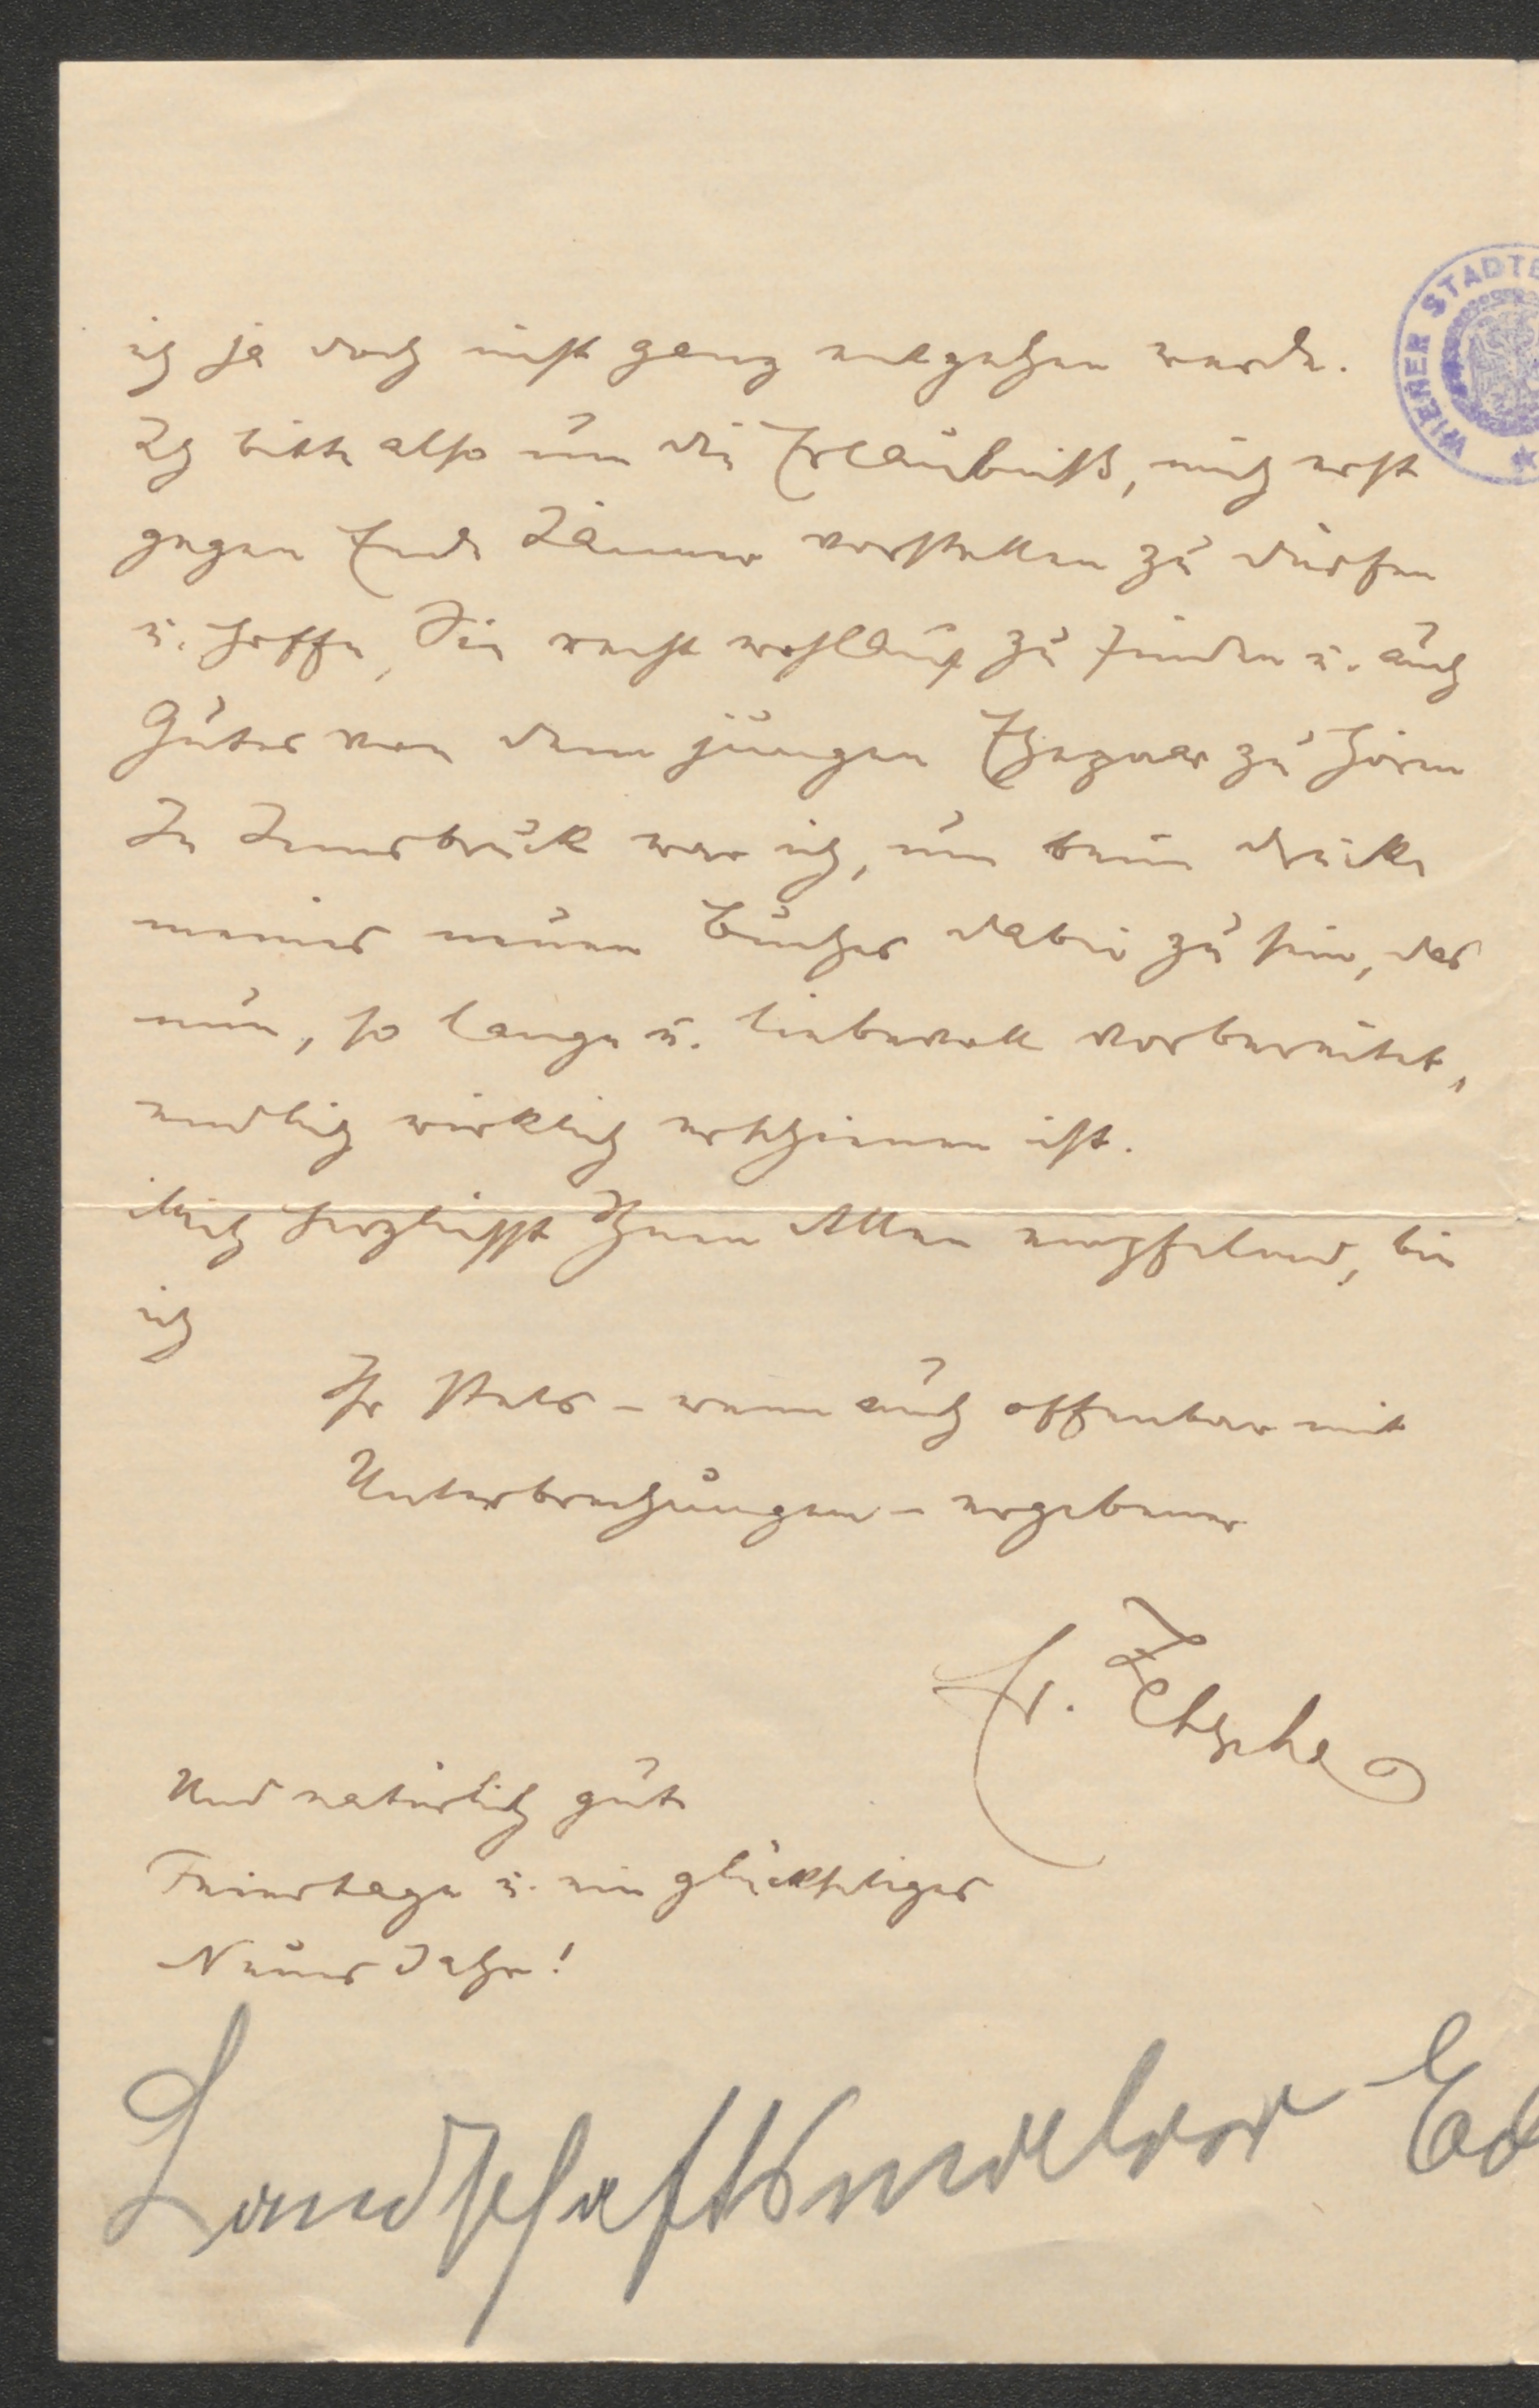 ich ja doch nicht ganz entgehen werde.
Ich bitte also um die Erlaubniß, mich erst
gegen Ende Jänner vorstellen zu dürfen
u. hoffe, Sie recht wohlauf zu finden u. auch
Gutes von dem jungen Ehepaar zu hören
In Innsbruck war ich, um beim Drucke
meines neuen Buches dabei zu sein, das
nun, so lange u. liebevoll vorbereitet,
endlich wirklich erschienen ist.
Mich herzlichst Ihnen Allen empfelend, bin
ich
Ihr stets – wenn auch offenbar mit
Unterbrechungen – ergebener
Zetsche
Und natürlich gute
Feiertage u. ein glückseliges
Neues Jahr!
Landschaftsmaler Ed
WIENER STADTB